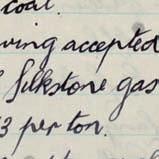 coal.
ving accepted
Silkstone gas
3 per ton.